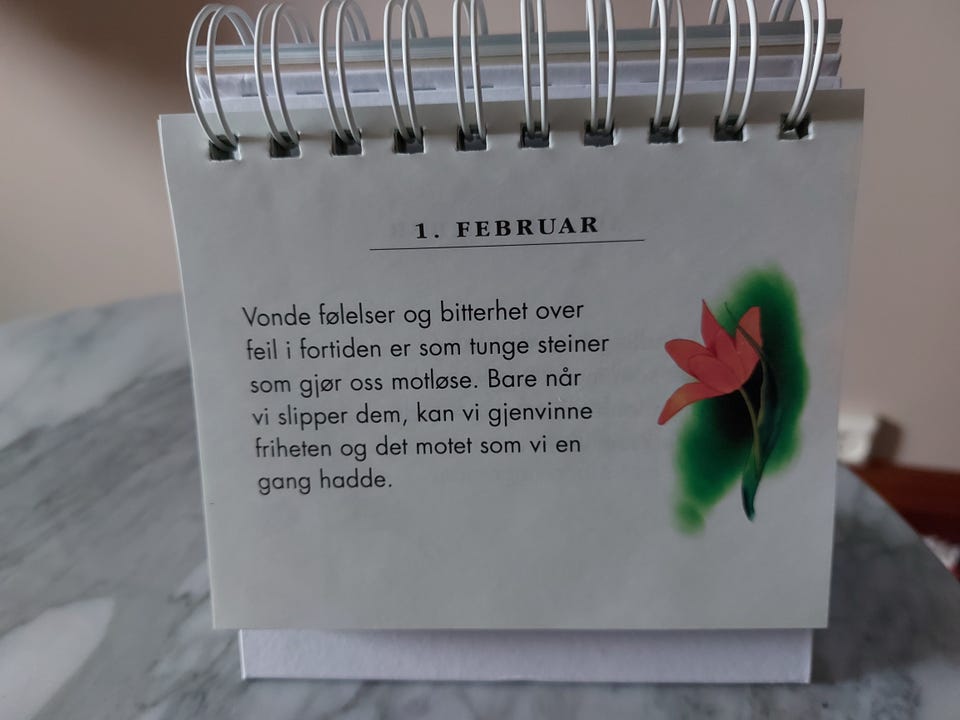 1. FEBRUAR
Vonde følelser og bitterhet over
feil i fortiden er som tunge steiner
som gjør oss motløse. Bare når
vi slipper dem, kan vi gjenvinne
friheten og det motet som vi en
gang hadde.